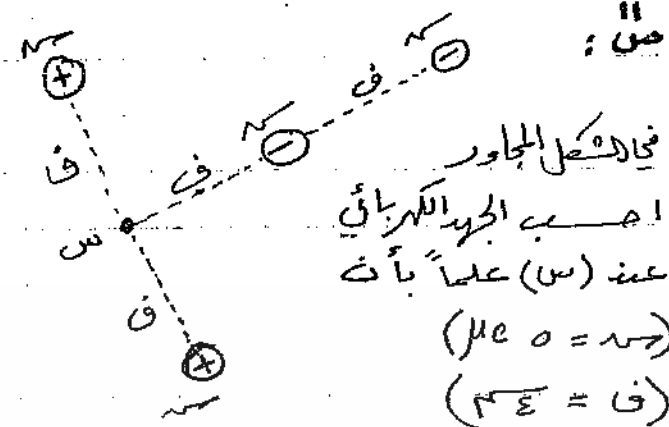 س١١:
في الشكل المجاور
احسب الجهد الكهربائي
عند (س) علماً بأن
(س = ٥ μc)
(ف = ٤ م)
س
+
س
-
ف
س
-
ف
ف
س
ف
+
س